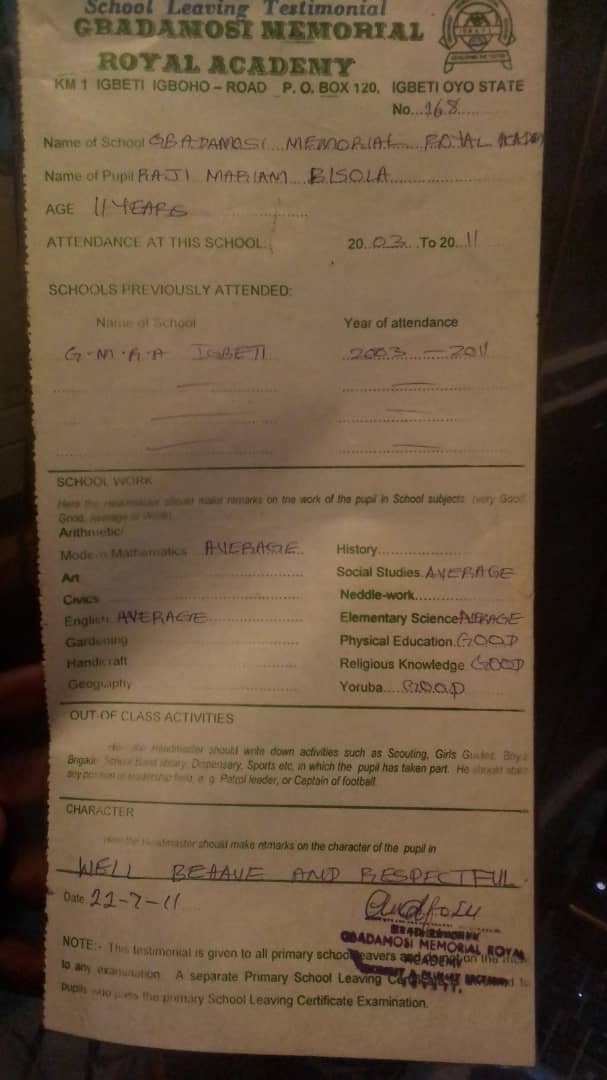 School Leaving Testimonial
GBADAMOSI MEMORIAL
ROYAL ACADEMY
KM 1 IGBETI IGBOHO – ROAD P. O. BOX 120, IGBETI OYO STATE
No...168.....
Name of School GBADAMOSI...MEMORIAL...ROYAL ACADEMY
Name of Pupil RAJI MARIAM BISOLA..............
AGE 11 YEARS
ATTENDANCE AT THIS SCHOOL: 20..03...To 20..11
SCHOOLS PREVIOUSLY ATTENDED:
Name of School Year of attendance
G.M.R.A IGBETI 2003 – 2011
SCHOOL WORK
Here the Headmaster should make remarks on the work of the pupil in School subjects (very Good
Good, Average or Weak).
Arithmetic/
Modern Mathematics AVERAGE History..................
Art Social Studies. AVERAGE
Civics Neddle-work.............
English. AVERAGE Elementary Science AVERAGE
Gardening Physical Education. GOOD
Handicraft Religious Knowledge GOOD
Geography Yoruba.... GOOD
OUT-OF CLASS ACTIVITIES
Headmaster should write down activities such as Scouting, Girls Guides, Boys
Brigade School Band library, Dispensary, Sports etc, in which the pupil has taken part. He should state
any position of leadership held, e. g. Patrol leader, or Captain of football.
CHARACTER
Here the Headmaster should make rtmarks on the character of the pupil in
WELL BEHAVE AND RESPECTFUL
Date 22-7-11
GBADAMOSI MEMORIAL ROYAL
ACADEMY
NOTE:- This testimonial is given to all primary school leavers and do not on the
to any examination. A separate Primary School Leaving to
pupils who pass the primary School Leaving Certificate Examination.